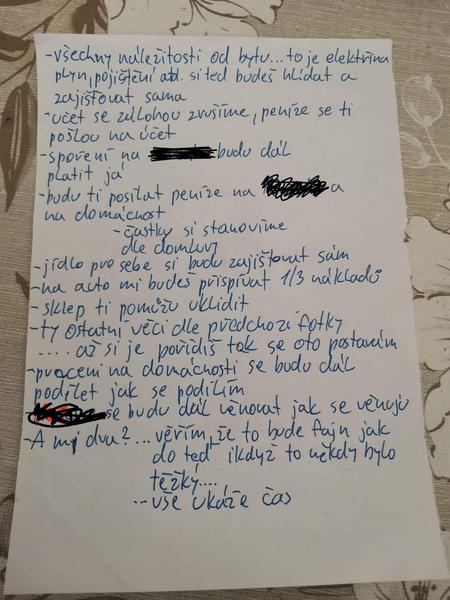 -všechny náležitosti od bytu...to je elektřina
plyn, pojištění atd. si teď budeš hlídat a
zajišťovat sama
-účet se zálohou zrušíme, peníze se ti
pošlou na účet
-spoření na budu dál
platit já
-budu ti posílat peníze na a
na domácnost
-částky si stanovíme
dle domluvy
-jídlo pro sebe si budu zajišťovat sám
-na auto mi budeš přispívat 1/3 nákladů
-sklep ti pomůžu uklidit
-ty ostatní věci dle předchozí fotky
.... až si je pořídíš tak se o to postarám
-pracemi na domácnosti se budu dál
podílet jak se podílím
- se budu dál věnovat jak se věnuju
-A my dva?...věřím, že to bude fajn jak
do teď, i když to někdy bylo
těžký....
...vše ukáže čas